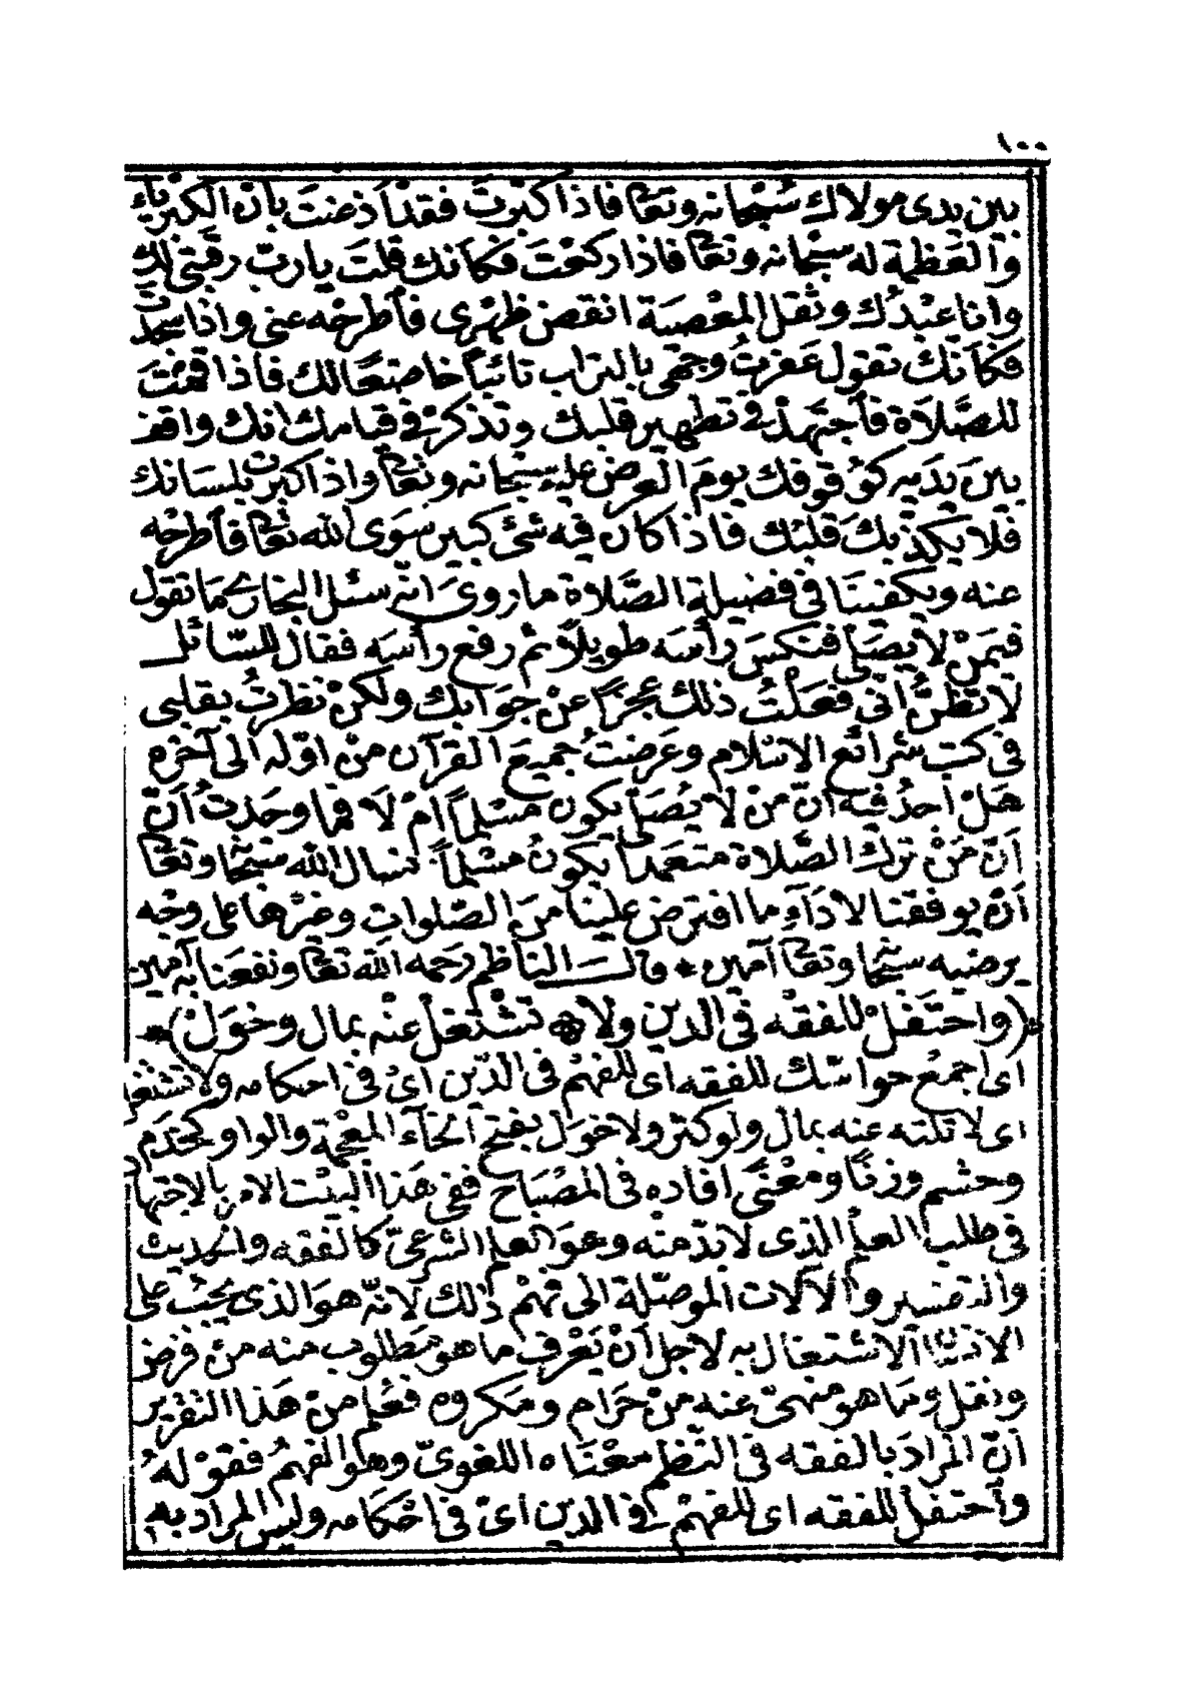 ١٠٠
بين يدى مولاك سُبْحانه وتعا فاذا كبَّرتَ فقد أذعنتَ بأن الكبرياء
والعَظمة له سبحانه وتعا فاذا ركعْتَ فكأنك قلتَ يا ربّ رقبتى لك
وانا عبْدُك وثقل المعْصية انقض ظهْرى فأطرحْه عنى واذا سجدت
فكأنك تقول عَفرتُ وجهى بالتراب تائباً خاضعًا لك فاذا قمْتَ
للصَّلاة فأجتهدْ فى تطهير قلبك وتذكرْ فى قيامك انك واقف
بين يَديه كوُقوفك يومَ العرض عليه سبحانه وتعا واذا كبرت بلسَانك
فلا يكذبكَ قلبُك فاذا كان فيه شئ كبير سوَى الله تعا فأطرحْه
عنه ويكفينَا فى فضيلة الصَّلاة ما روىَ انه سئل البخارى مَا تقول
فيمَنْ لا يُصَلى فنكسَ رأسَه طويلاً ثم رفع رأسَه فقال للسّائل
لا تظنُّ انّى فعَلْتُ ذلك عجزًا عنْ جوَابك ولكنْ نظرتُ بقلبى
فى كتب شرائع الاسْلام وعَرضتُ جميعَ القرآن منْ اوّله الى آخره
هَلْ اَجدُ فيه انّ منْ لا يُصَلى يكون مسْلماً امْ لَا فما وجَدتُ أنّ
أنّ مَنْ ترك الصَّلاة متعمداً يكونُ مسْلماً نسال الله سبحا وتعا
أنْ يوفقنا لاَدَآءِ ما افترض علينا منَ الصّلوات وغيْرها على وجْه
يرضيه سبحا وتعا آمين * قال الناظم رَحمه اللّه تعا ونفعَنا به آمين
(واحتفلْ للفقْه فى الدين ولا * تشْتغلْ عنْه بمال وخوَلْ) *
اى اجمعْ حواسّك للفقه اى للفهْم فى الدّين اىْ فى احكامه ولا تشتغلْ
اى لا تلته عنه بمال ولو كثر ولا خوَل بفتح الخآء المعْجمة والواو كخدَم
وحشم وزنًا ومعْنًى افاده فى المصْباح ففى هَذا البيْت الامر بالاجتها
فى طلب العلم الذى لا بدّ منْه وهوَ العلم الشرعىّ كالفقه والحديث
والتفسير والآلات الموصّلة الى فهْم ذلك لانّه هوَ الذى يجبُ على
الانسان الاشتغال به لاجل أنْ يَعْرف ما هو مَطلوب منه منْ فرض
ونفل ومَا هو منهىّ عنه منْ حَرام ومَكروه فعُلم منْ هَذا التقرير
أنّ المرادَ بالفقه فى النّظم معْنَاه اللغوىّ وهْو الفهمُ فقوْلهُ
وأحتفلْ للفقه اى للفهْم فى الدين اىْ فى احْكامه وليس المراد به